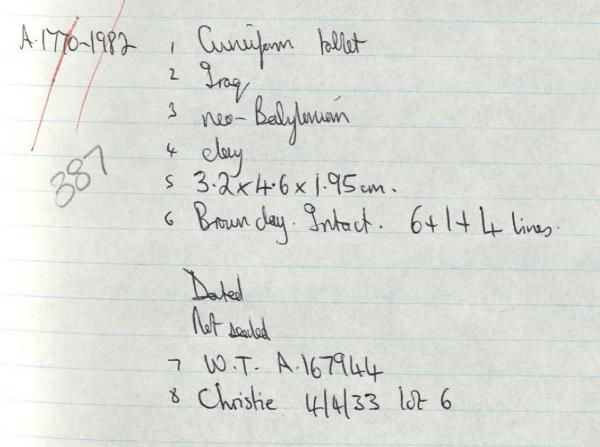 A.1770-1982 1 Cuneiform tablet
2 Iraq
3 neo-Babylonian
4 clay
887
5 3.2 x 4.6 x 1.95 cm.
6 Brown clay. Intact. 6+1+4 lines.
Dated
Not sealed
7 W.T. A.167944
8 Christie 4/4/33 lot 6